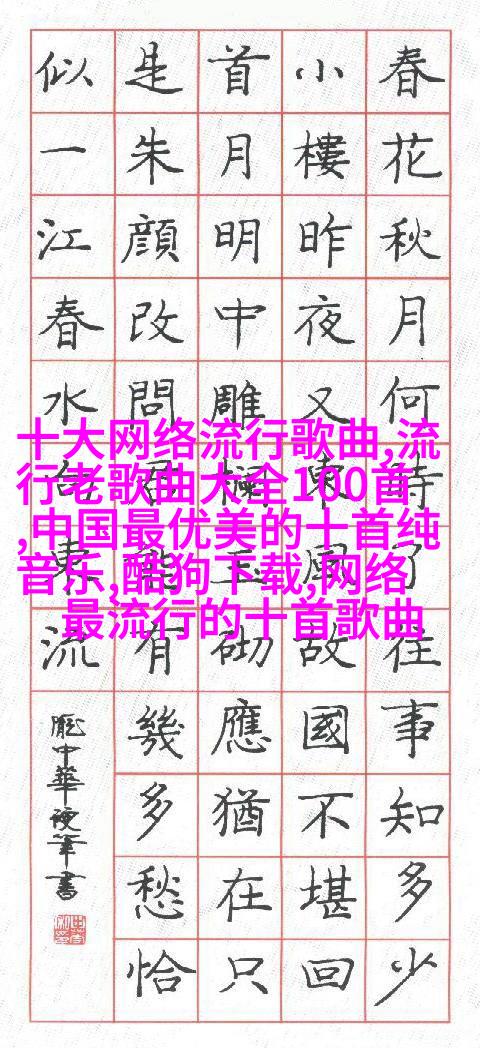 春花秋月何時了往事知多少
小樓昨夜又東風故國不堪回
首月明中雕欄玉砌應猶在只
是朱顔改問君能有幾多愁恰
似一江春水向東流
龐中華硬筆書
十大网络流行歌曲,流
行老歌曲大全100首
,中国最优美的十首纯
音乐,酷狗下载,网络
最流行的十首歌曲